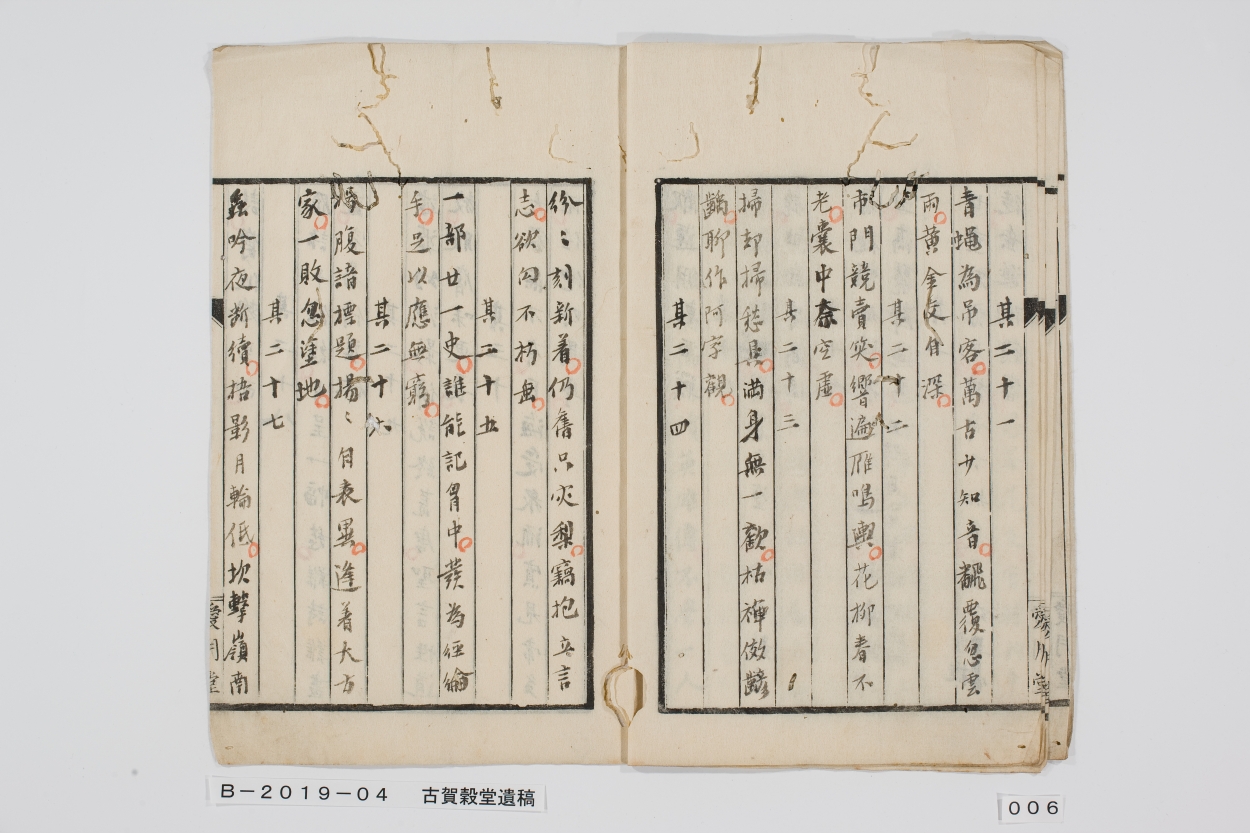 其二十一
青蝿為吊客萬古少知音飜覆忽雲
雨黄金交自深
其二十二
市門競賣笑響遍雁鳴輿花柳春不
老嚢中奈空虚
其二十三
掃却掃愁具満身無一歓枯禅傚
聊作阿字観
其二十四
紛〻刻新着仍舊只灾梨竊抱立言
志欲問不朽無
其二十五
一部廿一史誰能記胃中發為經綸
手足以應無窮
其二十六
腹諳標題揚〻自表異逢着大方
家一敗忽塗地
其二十七
吟夜断續梧影月輪低坎擊嶺南
愛月堂
愛月堂
B－2019－04　古賀穀堂遺稿
006